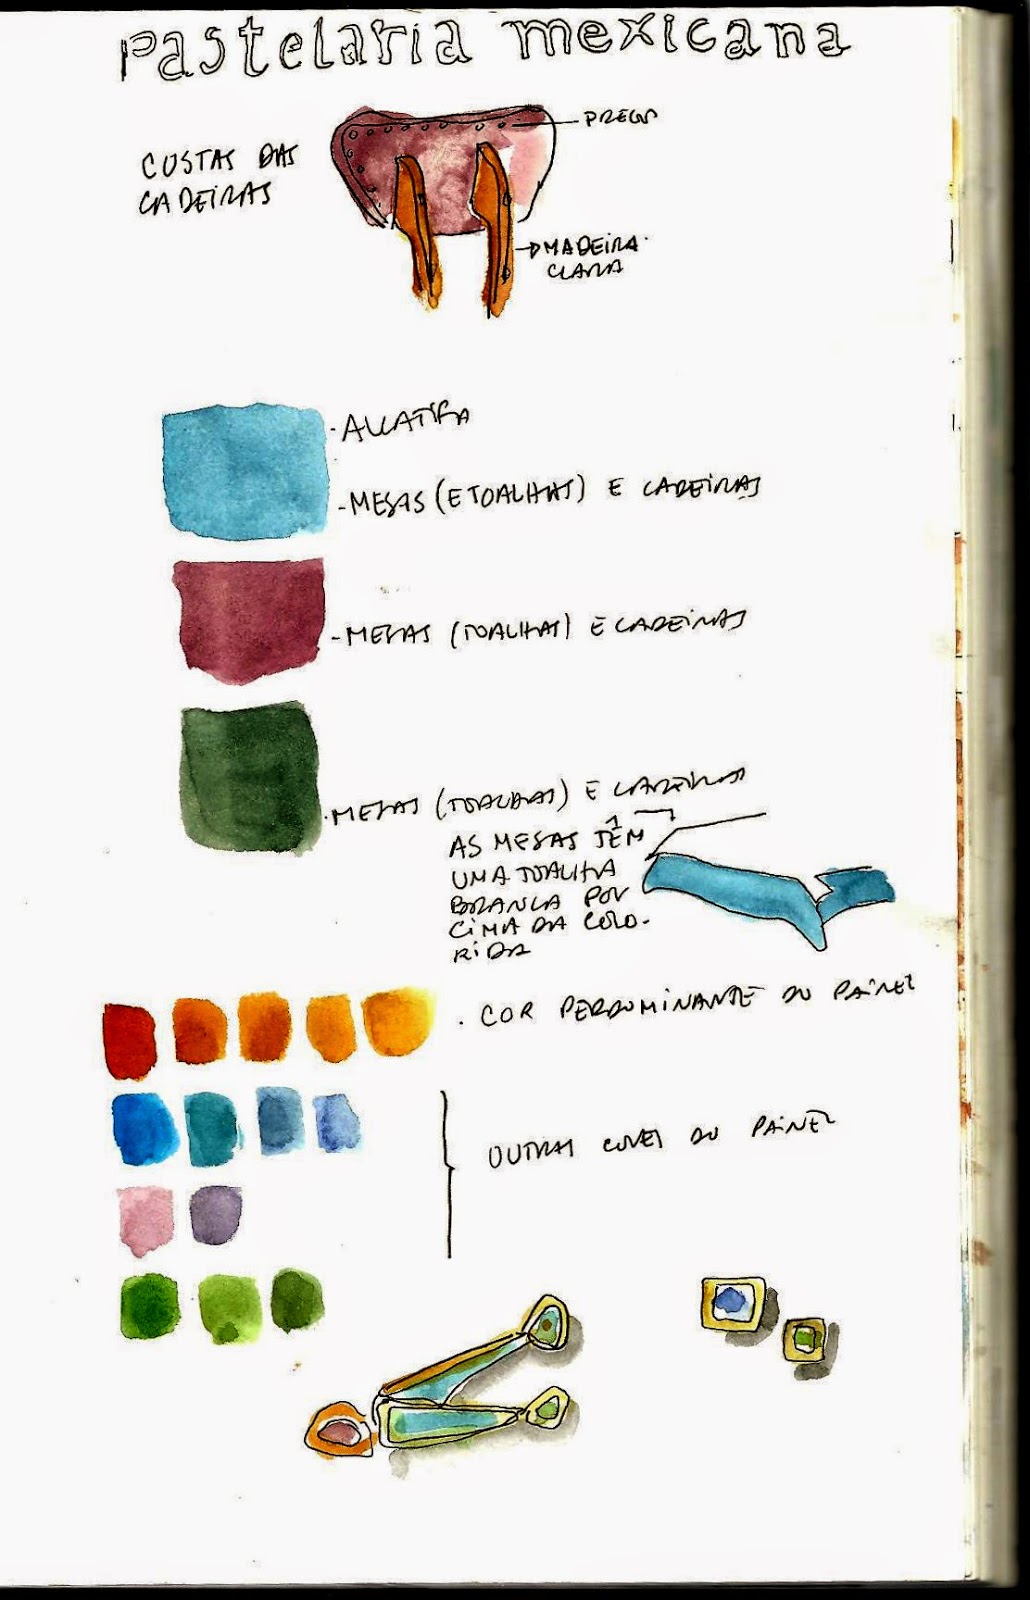 Pastelaria mexicana
COSTAS DAS
CADEIRAS
PREGO
MADEIRA
CLARA
- ALCATIFA
- MESAS (E TOALHAS) E CADEIRAS
- MESAS (TOALHAS) E CADEIRAS
. MESAS (TOALHAS) E CADEIRAS
AS MESAS TÊM
UMA TOALHA
BRANCA POR
CIMA DA COLO-
RIDA
. COR PERDOMINANTE DO PAINEL
OUTRAS CORES DO PAINEL